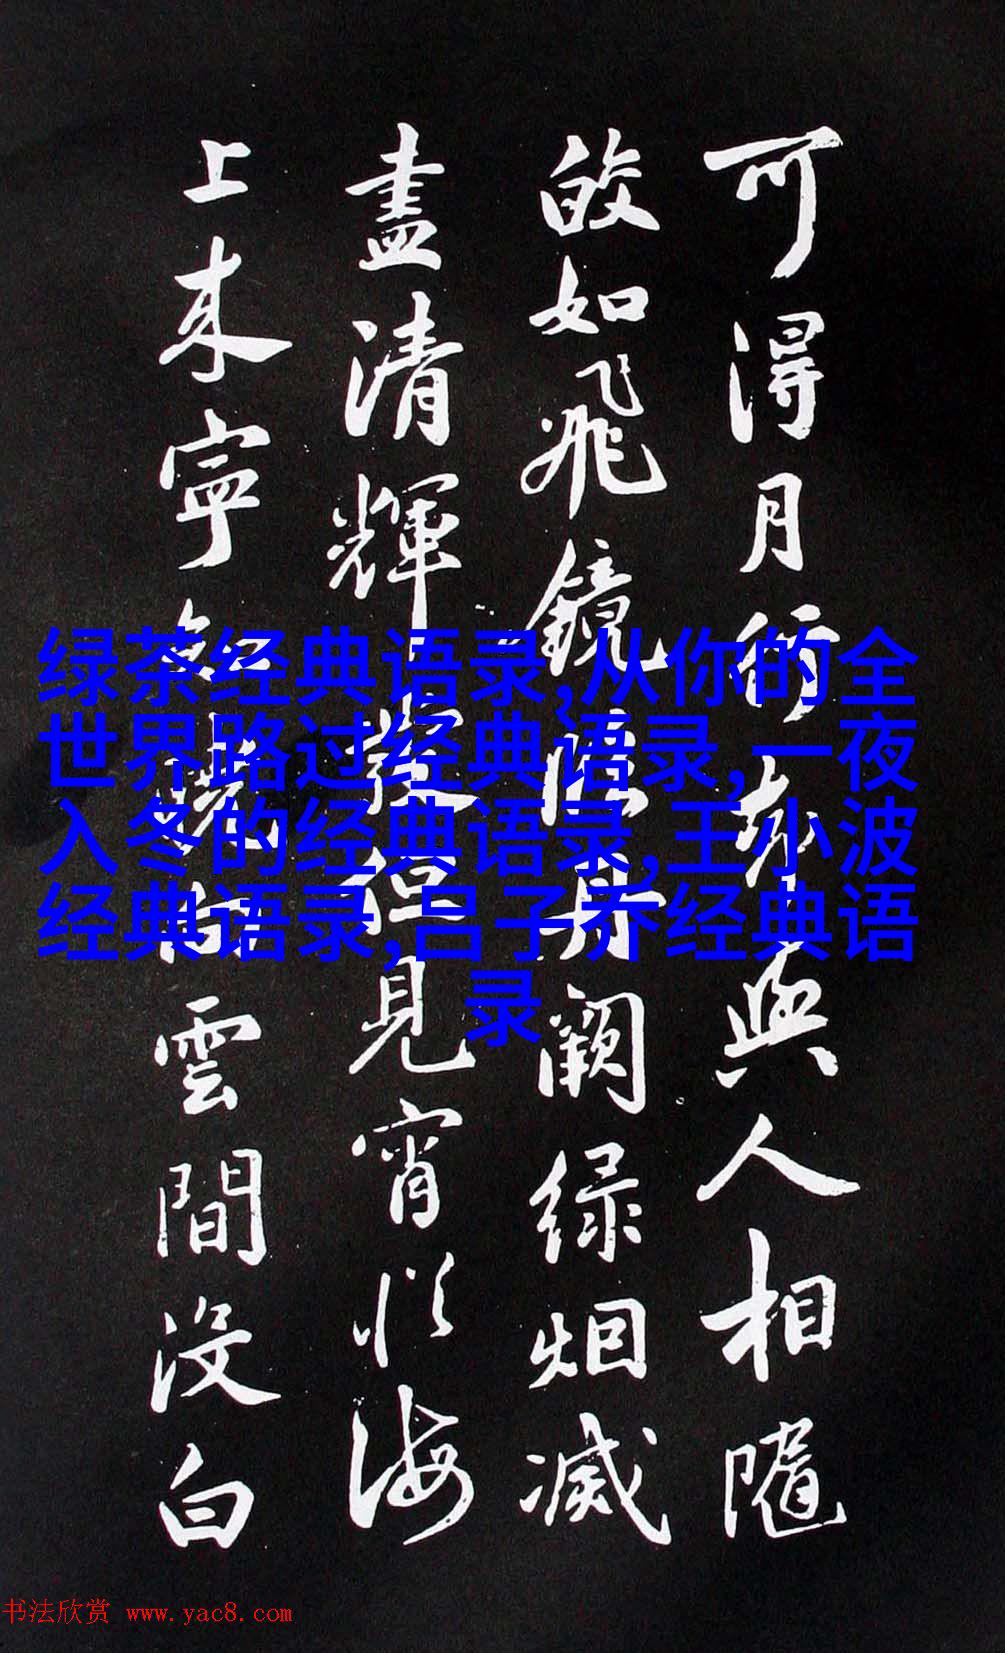 可得月行却與人相隨
皎如飛鏡臨丹闕緑烟滅
盡清輝發但見宵從海
上来寧知曉向雲間没白
绿茶经典语录,从你的全
世界路过经典语录,一夜
入冬的经典语录,王小波
经典语录,吕子乔经典语
录
书法欣赏 www.yac8.com